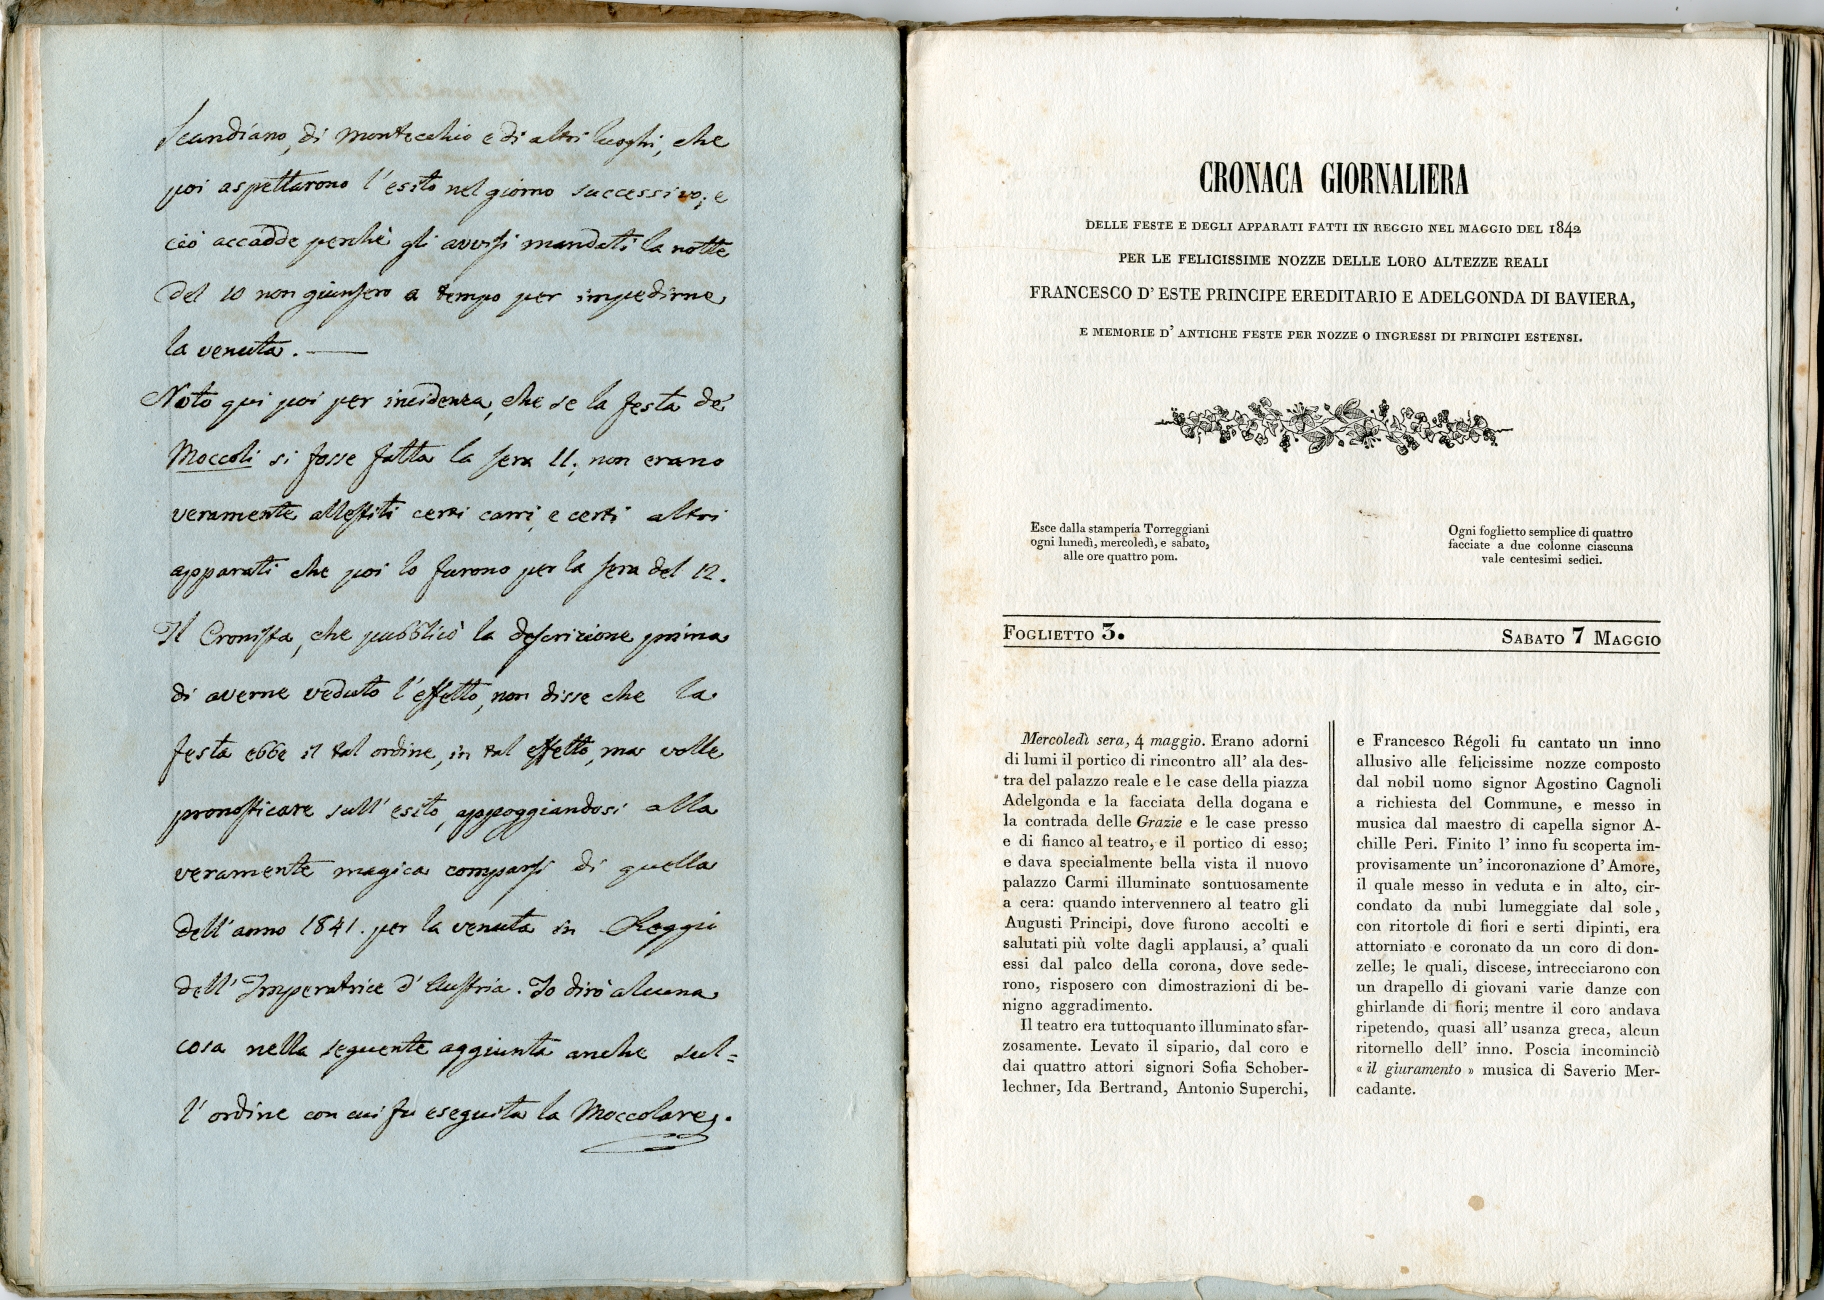 Scandiano, di Montecchio e di altri luoghi, che
poi aspettarono l'esito nel giorno successivo; e
ciò accadde perchè gli avvisi mandati la notte
del 10 non giunsero a tempo per impedirne
la venuta. —
Noto qui poi per incidenza, che se la festa de'
Moccoli si fosse fatta la sera 11; non erano
veramente allestiti certi carri, e certi altri
apparati che poi lo furono per la sera del 12.
Il Cronista, che pubblicò la descrizione prima
di averne veduto l'effetto, non disse che la
festa ebbe il tal ordine, in tal effetto, ma volle
pronosticare sull'esito, appoggiandosi alla
veramente magica comparsi di quella
dell'anno 1841. per la venuta in Reggio
dell'Imperatrice d'Austria. Io dirò alcuna
cosa nella seguente aggiunta anche sul=
l'ordine con cui fu eseguita la Moccolare.
CRONACA GIORNALIERA
DELLE FESTE E DEGLI APPARATI FATTI IN REGGIO NEL MAGGIO DEL 1842
PER LE FELICISSIME NOZZE DELLE LORO ALTEZZE REALI
FRANCESCO D' ESTE PRINCIPE EREDITARIO E ADELGONDA DI BAVIERA,
E MEMORIE D' ANTICHE FESTE PER NOZZE O INGRESSI DI PRINCIPI ESTENSI.
Esce dalla stamperia Torreggiani
ogni lunedì, mercoledì, e sabato,
alle ore quattro pom.
Ogni foglietto semplice di quattro
facciate a due colonne ciascuna
vale centesimi sedici.
FOGLIETTO 3.
SABATO 7 MAGGIO
Mercoledì sera, 4 maggio. Erano adorni
di lumi il portico di rincontro all' ala des-
tra del palazzo reale e le case della piazza
Adelgonda e la facciata della dogana e
la contrada delle Grazie e le case presso
e di fianco al teatro, e il portico di esso;
e dava specialmente bella vista il nuovo
palazzo Carmi illuminato sontuosamente
a cera: quando intervennero al teatro gli
Augusti Principi, dove furono accolti e
salutati più volte dagli applausi, a' quali
essi dal palco della corona, dove sede-
rono, risposero con dimostrazioni di be-
nigno aggradimento.
Il teatro era tuttoquanto illuminato sfar-
zosamente. Levato il sipario, dal coro e
dai quattro attori signori Sofia Schober-
lechner, Ida Bertrand, Antonio Superchi,
e Francesco Régoli fu cantato un inno
allusivo alle felicissime nozze composto
dal nobil uomo signor Agostino Cagnoli
a richiesta del Commune, e messo in
musica dal maestro di capella signor A-
chille Peri. Finito l' inno fu scoperta im-
provisamente un' incoronazione d' Amore,
il quale messo in veduta e in alto, cir-
condato da nubi lumeggiate dal sole,
con ritortole di fiori e serti dipinti, era
attorniato e coronato da un coro di don-
zelle; le quali, discese, intrecciarono con
un drapello di giovani varie danze con
ghirlande di fiori; mentre il coro andava
ripetendo, quasi all' usanza greca, alcun
ritornello dell' inno. Poscia incominciò
« il giuramento » musica di Saverio Mer-
cadante.